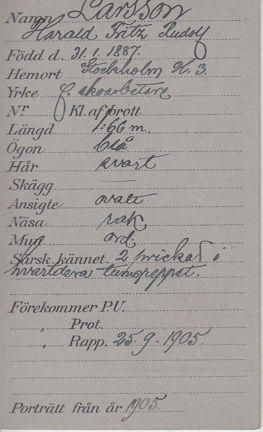 Namn Larsson
Harald Fritz Rudolf
Född d. 31.1.1887.
Hemort Stockholm K. 3.
Yrke f. skoarbetare
Nr Kl. af brott
Längd 1.66 m.
Ögon blå
Hår svart
Skägg
Ansigte ovalt
Näsa rak
Mun ord.
Särsk. kännet. 2 prickar i
hvartdera tumgreppet.
Förekommer P.U.
" Prot.
" Rapp. 25.9.1905.
Porträtt från år 1905.